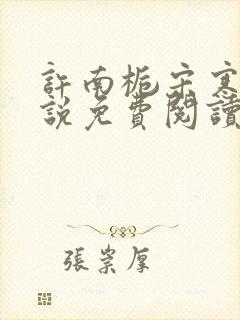 許南梔宋寒
說免費閱讀
張崇厚